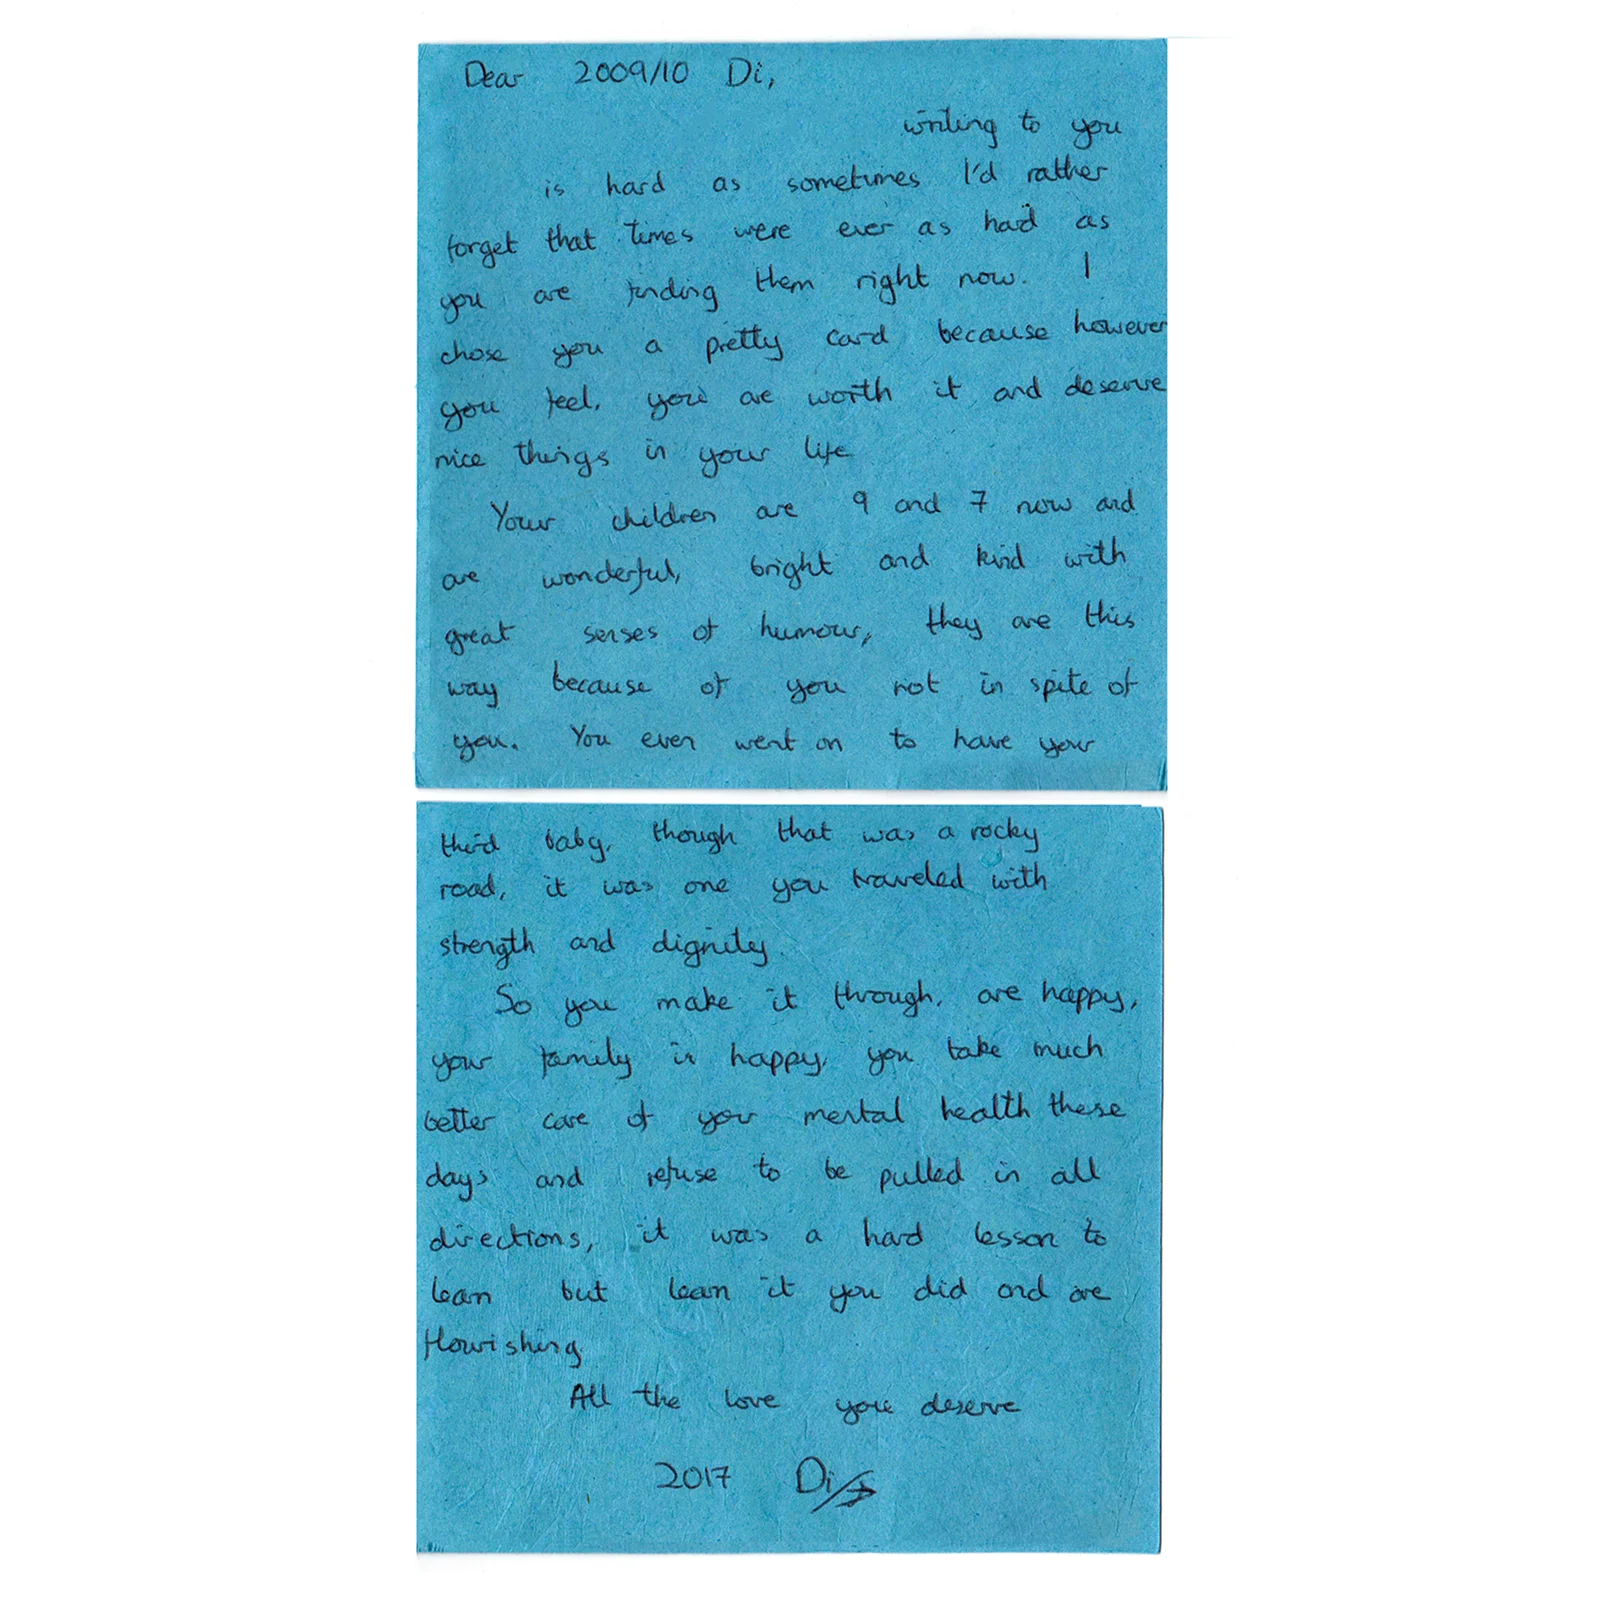 Dear 2009/10 Di,
writing to you
is hard as sometimes I'd rather
forget that times were ever as hard as
you are finding them right now. I
chose you a pretty card because however
you feel, you are worth it and deserve
nice things in your life
Your children are 9 and 7 now and
are wonderful, bright and kind with
great senses of humour, they are this
way because of you not in spite of
you. You even went on to have your
third baby, though that was a rocky
road, it was one you traveled with
strength and dignity.
So you make it through, are happy,
your family is happy, you take much
better care of your mental health these
days and refuse to be pulled in all
directions, it was a hard lesson to
learn but learn it you did and are
flourishing
All the love you deserve
2017 Di